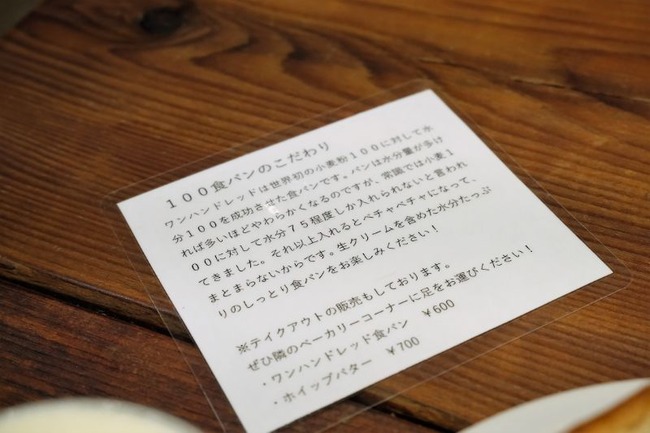 １００食パンのこだわり
ワンハンドレッドは世界初の小麦粉１００に対して水
分１００を成功させた食パンです。パンは水分量が多け
れば多いほどやわらかくなるのですが、常識では小麦１
００に対して水分７５程度しか入れられないと言われ
てきました。それ以上入れるとペチャペチャになって、
まとまらないからです。生クリームを含めた水分たっぷ
りのしっとり食パンをお楽しみください！
※テイクアウトの販売もしております。
ぜひ隣のベーカリーコーナーに足をお運びください！
・ワンハンドレッド食パン　￥600
・ホイップバター　￥700